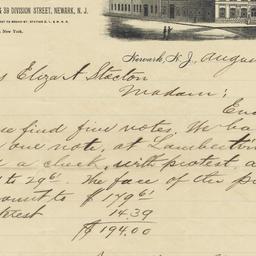 & 39 DIVISION STREET, NEWARK, N. J.
New York.
Newark, N.J., Augus
s Eliza A Stacton
Madam;
Enc
se find five notes. We ha
one note, at Lambertvi
d a check, with protest a
to 29 61. The face of the p
ount to $ 179 61
terest 14.39
$ 194.00